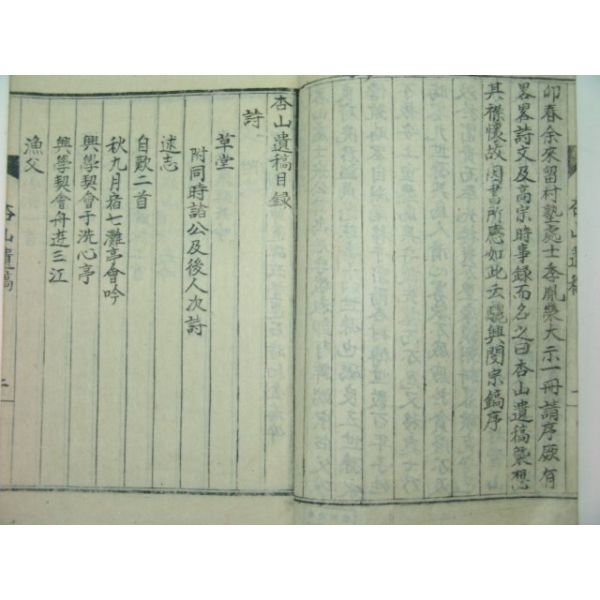 卯春余來留村塾處士李胤榮大示一冊請序厥有
畧畧詩文及高宗時事録而名之曰杏山遺稿槩想
其襟懷故因書所應如此云驪興閔宗鎬序
杏山遺稿目録
詩
草堂
附同時諸公及後人次詩
述志
自歎二首
秋九月宿七灘亭會吟
興學契會于洗心亭
興學契會舟遊三江
漁父
杏山遺稿
二